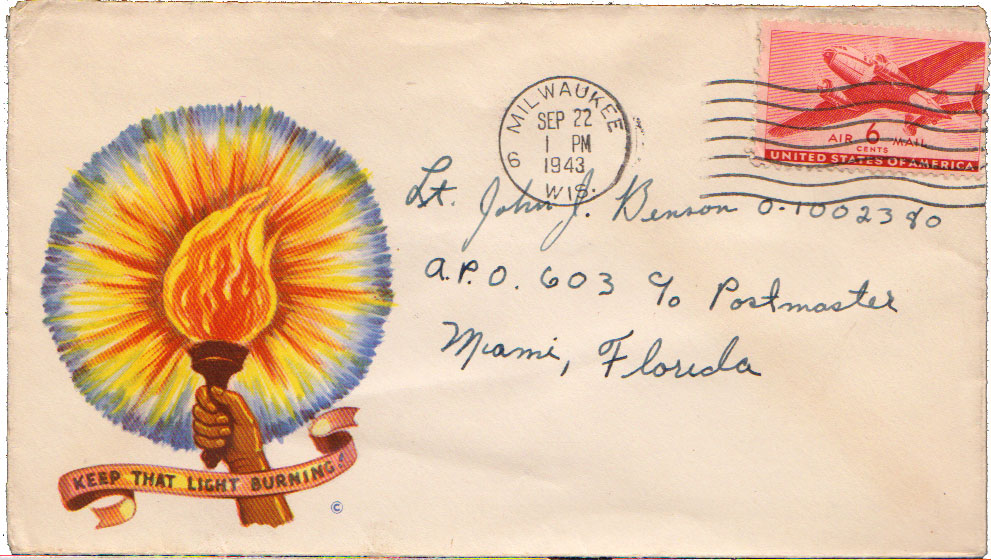 MILWAUKEE
SEP 22
1 PM
1943
WIS.
6
AIR 6 MAIL
CENTS
UNITED STATES OF AMERICA
Lt. John J. Benson O-1002380
A.P.O. 603 c/o Postmaster
Miami, Florida
KEEP THAT LIGHT BURNING!
©